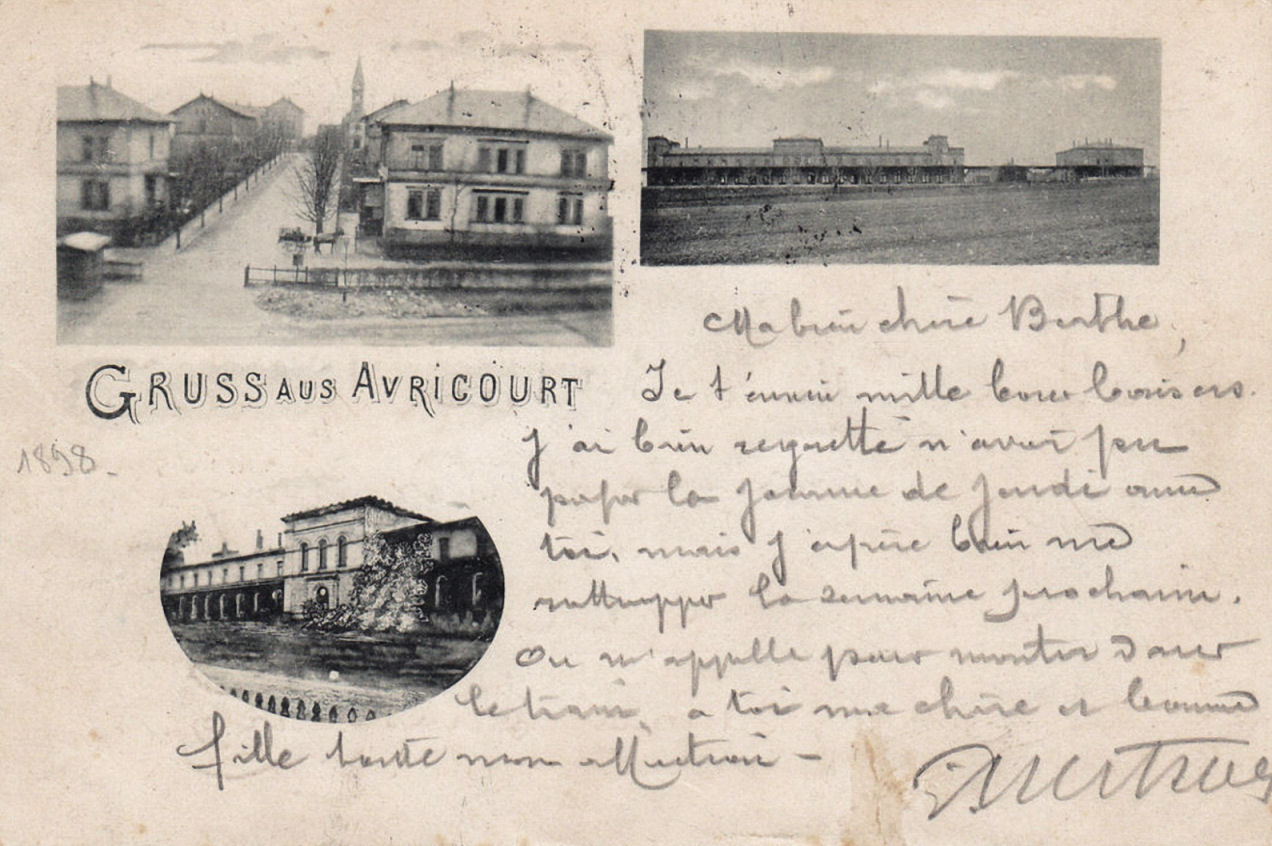 GRUSS AUS AVRICOURT
1898
Ma bien chère Berthe,
Je t'envoie mille bons baisers.
J'ai bien regretté n'avoir pu
passer la journée de jeudi avec
toi, mais j'espère bien me
rattrapper la semaine prochaine.
On m'appelle pour monter dans
le train, a toi ma chère et bonne
fille toute mon affection –